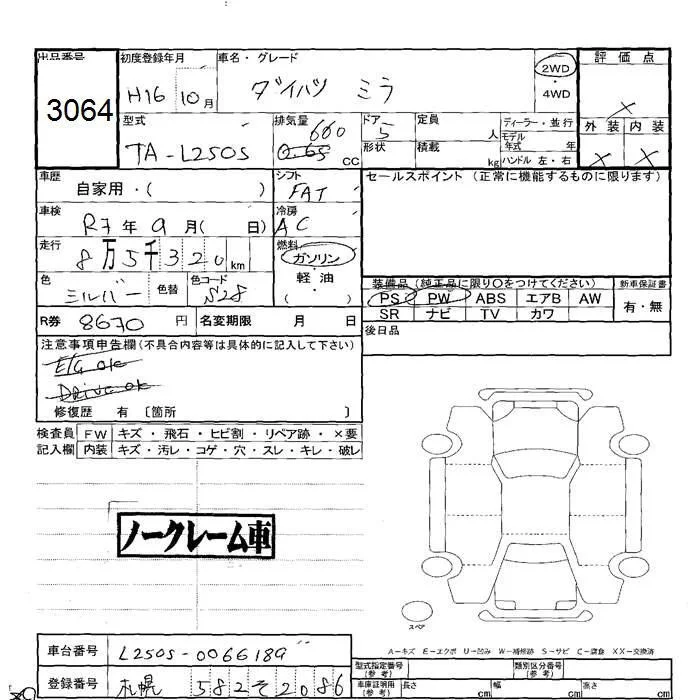 出品番号 初度登録年月 車名・グレード 2WD 評価点
3064 H16 10月 ダイハツ ミラ ・4WD ×
型式 排気量 660 ドア 5 定員 人 ディーラー・並行 外装 内装
TA-L250S 0.65 cc 形状 積載 kg モデル年式 年 ハンドル 左・右 × ×
車歴 自家用・( ) シフト FAT セールスポイント (正常に機能するものに限ります)
車検 R7年 9月( 日) 冷房 AC
走行 8万5千320km 燃料 ガソリン
軽油
色 シルバー 色替 色コード S28 ( ) 装備品 (純正品に限り○をつけてください) 新車保証書
PS PW ABS エアB AW 有・無
R券 8670円 名変期限 月 日 SR ナビ TV カワ
後日品
注意事項申告欄(不具合内容等は具体的に記入して下さい)
E/G OK
DRIVE OK
修復歴 有 〔箇所 〕
検査員 FW キズ・飛石・ヒビ割・リペア跡・×要
記入欄 内装 キズ・汚レ・コゲ・穴・スレ・キレ・破レ
ノークレーム車
スペア
A-キズ E-エクボ U-凹み W-補修跡 S-サビ C-腐食 XX-交換済
車台番号 L250S-0066189 型式指定番号(参考) 類別区分番号(参考)
登録番号 札幌 582 そ 2086 車庫証明用(参考) 長さ cm 幅 cm 高さ cm